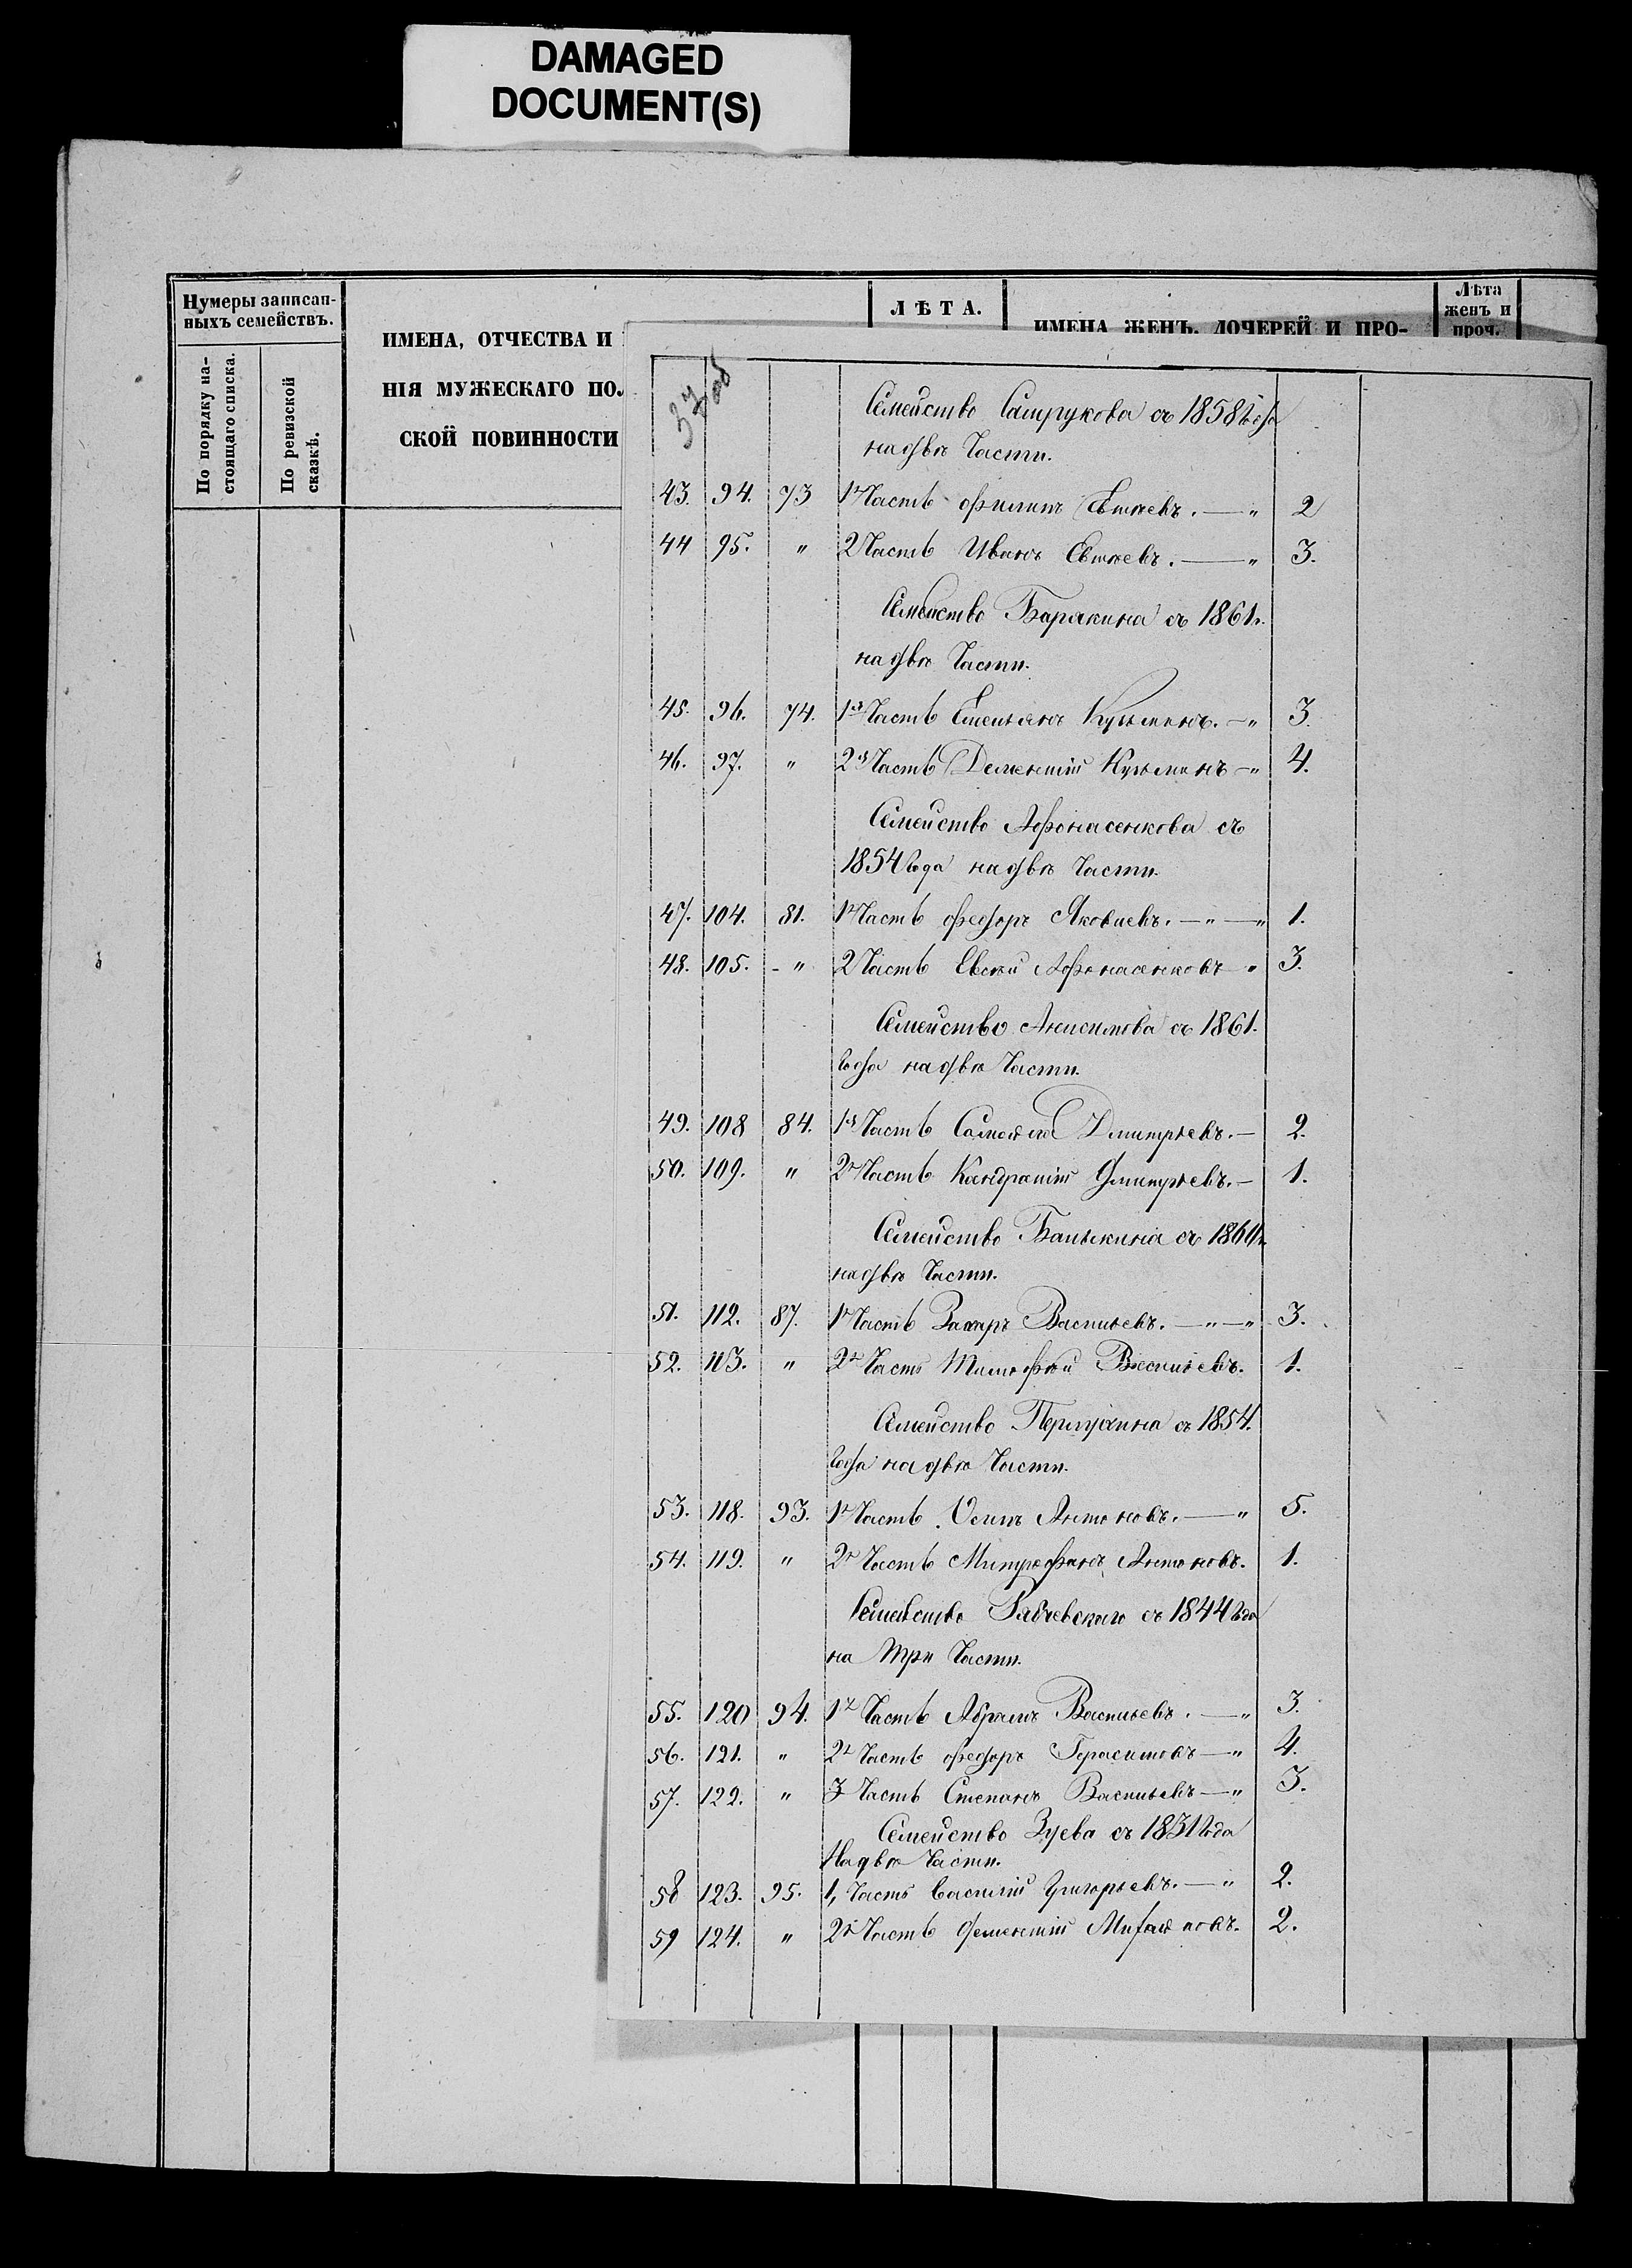 DAMAGED
DOCUMENT(S)
Нумеры записан-
ныхъ семействъ.
По порядку на-
стоящаго списка.
По ревизской
сказкѣ.
ИМЕНА, ОТЧЕСТВА И
НІЯ МУЖЕСКАГО ПО
СКОЙ ПОВИННОСТИ
ЛѢТА.
ИМЕНА ЖЕНЪ, ДОЧЕРЕЙ И ПРО-
Лѣта
женъ и
проч.
37 об
Семейство Сапрукова съ 1858 года
на двѣ Части.
43. 94. 73 1я Часть Филипъ Евтѣевъ. — " 2
44 95. " 2 Часть Иванъ Евтѣевъ. — " 3.
Семейство Барякина съ 1861 г.
на двѣ Части.
45. 96. 74. 1я Часть Емельянъ Кузьминъ. — " 3.
46. 97. " 2я Часть Дементій Кузьминъ — " 4.
Семейство Афонасенкова съ
1854 года на двѣ Части.
47. 104. 81. 1я Часть Федоръ Яковлевъ. — " — " 1.
48. 105. - " 2 Часть Евсѣй Афонасенковъ — " 3.
Семейство Анисимова съ 1861.
года на двѣ Части.
49. 108 84. 1я Часть Самойла Дмитріевъ. — 2.
50. 109. " 2я Часть Кандратій Дмитріевъ. — 1.
Семейство Банькина съ 1861 г.
на двѣ Части.
51. 112. 87. 1я Часть Захаръ Васильевъ. — " — " 3.
52. 113. " 2я Часть Тимофѣй Васильевъ. 1.
Семейство съ 1854.
года на двѣ Части.
53. 118. 93. 1я Часть Осипъ Антоновъ. — " 5.
54. 119. " 2я Часть Митрофанъ Антоновъ. 1.
Семейство съ 1844 года
на три Части.
55. 120 94. 1я Часть Абрамъ Васильевъ. — " 3.
56. 121. " 2я Часть Федоръ Герасимовъ — " 4.
57. 122. " 3 Часть Степанъ Васильевъ — " 3.
Семейство Зуева съ 1831 года
На двѣ Части.
58 123. 95. 1, Часть Василій Григорьевъ. — " 2.
59 124. " 2я Часть Дементій Михайловъ. 2.